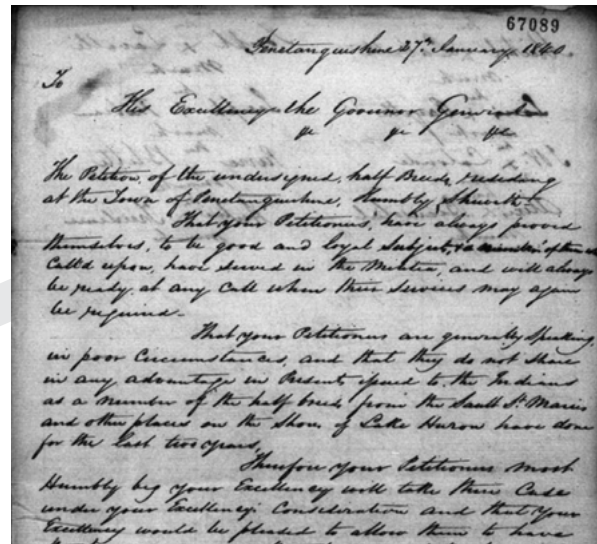 67089
Penetanguishine 27th January 1840.
To
His Excellency the Governor General
&c &c &c
The Petition, of the undersigned, half Breeds, residing
at the Town of Penetanguishine, Humbly Sheweth
That your Petitioners, have always, proved
themselves, to be good and loyal Subjects, & a number of them
call'd upon, have served in the Militia, and will always
be ready, at any call when their services may again
be required-
That your Petitioners are generally speaking,
in poor Circumstances, and that they do not share
in any advantage in Presents issued to the Indians
as a number of the half breeds from the Sault St. Maries
and other places on the Shores of Lake Huron have done
for the last two years,
Therefore your Petitioners most
Humbly beg your Excellency will take their Case
under your Excellency's Consideration and that Your
Excellency would be pleased to allow them to have